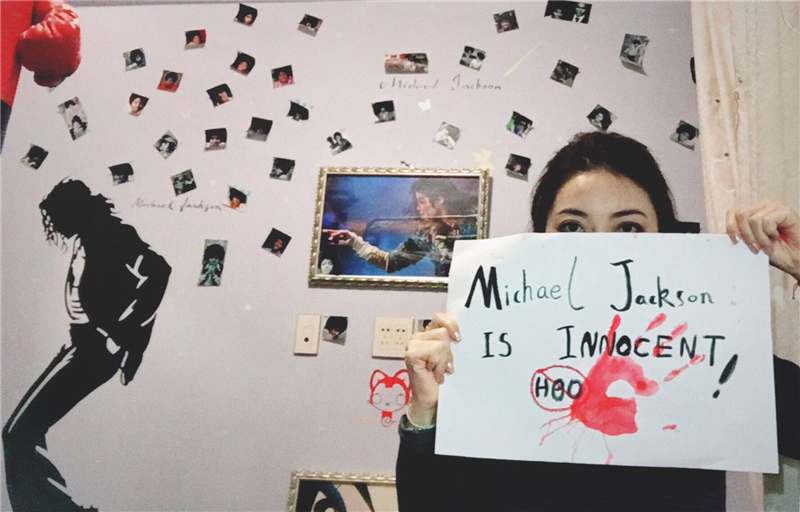 Michael Jackson
Michael Jackson
Michael Jackson
IS INNOCENT!
HOO